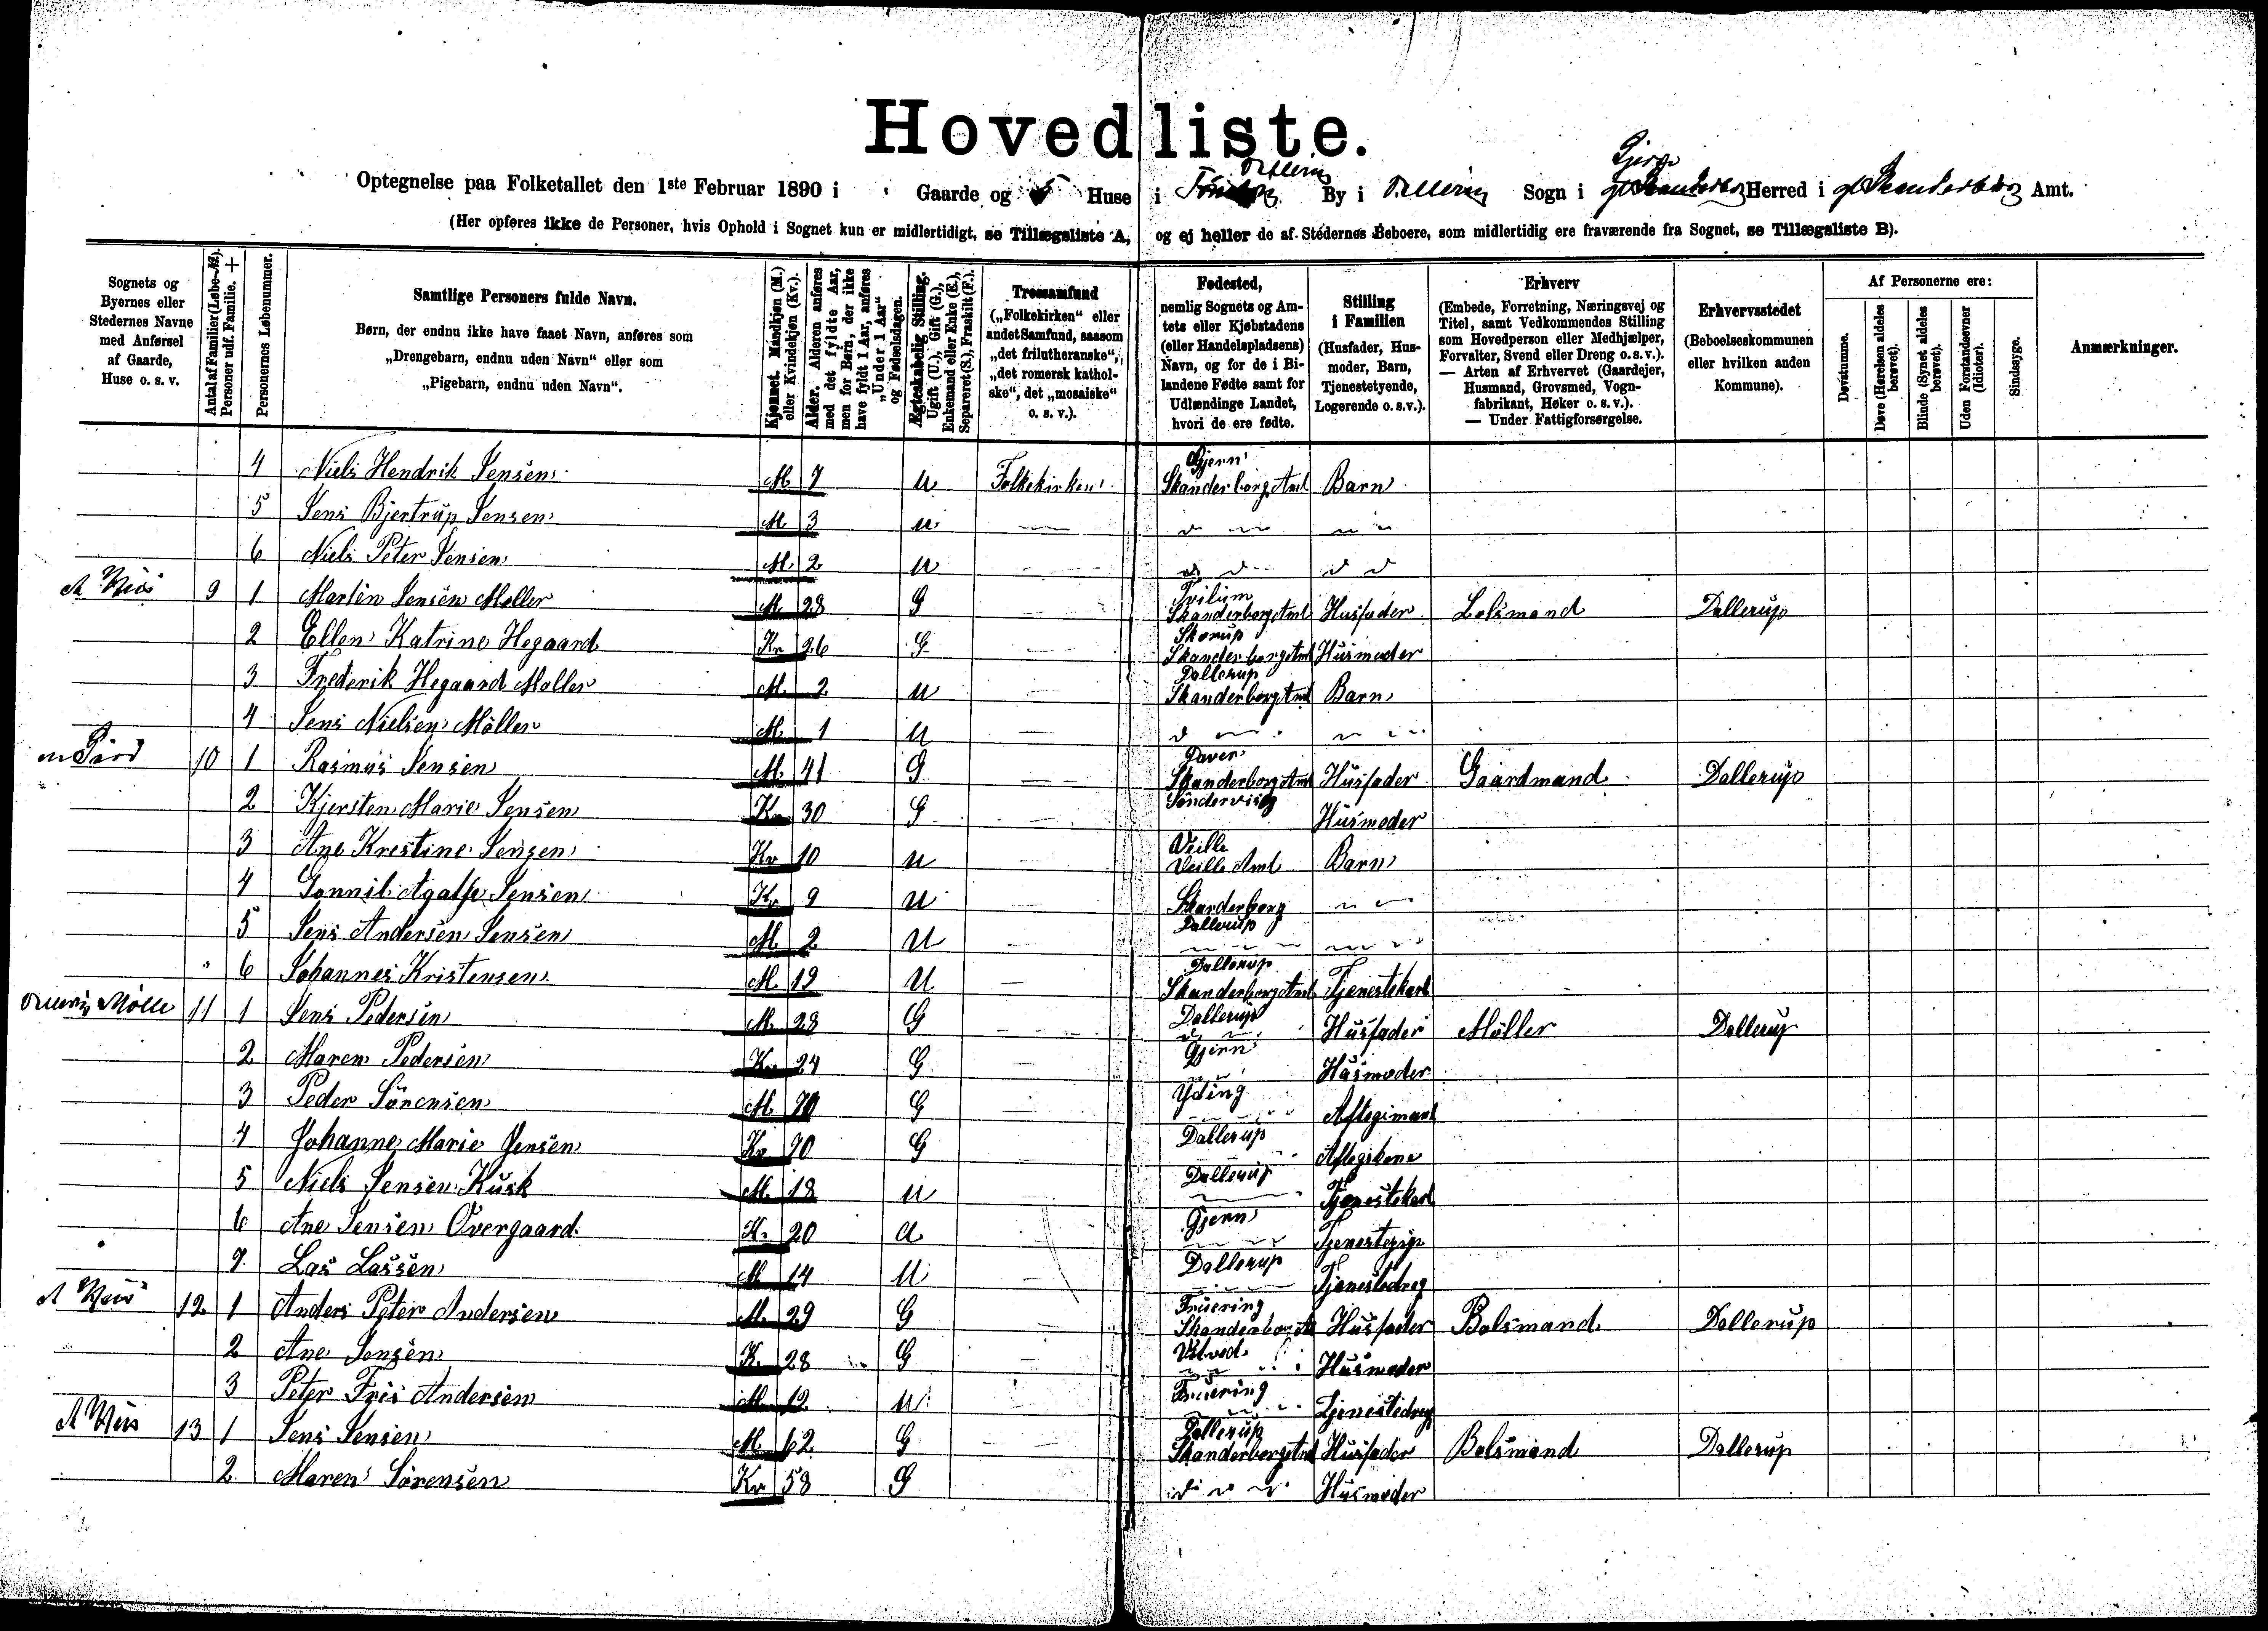 Hovedliste.
Optegnelse paa Folketallet den 1ste Februar 1890 i Gaarde og Huse i By i Sogn i Herred i Skanderborg Amt.
(Her opføres ikke de Personer, hvis Ophold i Sognet kun er midlertidigt, se Tillægsliste A, og ej heller de af Stedernes Beboere, som midlertidig ere fraværende fra Sognet, se Tillægsliste B).
Sognets og Byernes eller Stedernes Navne med Anførsel af Gaarde, Huse o. s. v.
Antal af Familier (Løbe-No). Personer udf. Familie. +
Personernes Løbenummer.
Samtlige Personers fulde Navn.
Børn, der endnu ikke have faaet Navn, anføres som „Drengebarn, endnu uden Navn“ eller som „Pigebarn, endnu uden Navn“.
Kjønnet. Mandkjøn (M.) eller Kvindekjøn (Kv.).
Alder. Alderen anføres med det fyldte Aar, men for Børn, der ikke have fyldt 1 Aar, anføres „Under 1 Aar“ og Fødselsdagen.
Ægteskabelig Stilling. Ugift (U.), Gift (G.), Enkemand eller Enke (E.), Separeret (S.), Fraskilt (F.).
Trossamfund („Folkekirken“ eller andet Samfund, saasom „det frilutheranske“, „det romersk katholske“, det „mosaiske“ o. s. v.).
Fødested, nemlig Sognets og Amtets eller Kjøbstadens (eller Handelspladsens) Navn, og for de i Bilandene Fødte samt for Udlændinge Landet, hvori de ere fødte.
Stilling i Familien (Husfader, Husmoder, Barn, Tjenestetyende, Logerende o. s. v.).
Erhverv (Embede, Forretning, Næringsvej og Titel, samt Vedkommendes Stilling som Hovedperson eller Medhjælper, Forvalter, Svend eller Dreng o. s. v.). — Arten af Erhvervet (Gaardejer, Husmand, Grovsmed, Vognfabrikant, Høker o. s. v.). — Under Fattigforsørgelse.
Erhvervsstedet (Beboelseskommunen eller hvilken anden Kommune).
Af Personerne ere:
Døvstumme.
Døve (Hørelsen aldeles berøvet).
Blinde (Synet aldeles berøvet).
Uden Forstandsevner (Idioter).
Sindssyge.
Anmærkninger.
4 Niels Hendrik Jensen M 7 U Folkekirken Gjern Skanderborg Amt Barn
5 Jens Bjertrup Jensen M 3 U
6 Niels Peter Jensen M. 2 U
Hus 9 1 Martin Jensen Møller M. 28 G Tvilum Skanderborg Amt Husfader Bolsmand Dallerup
2 Ellen Katrine Hegaard Kv 26 G Skorup Skanderborg Amt Husmoder
3 Frederik Hegaard Møller M. 2 U Dallerup Skanderborg Amt Barn
4 Jens Nielsen Møller M. 1 U
10 1 Rasmus Jensen M. 41 G Dover Skanderborg Amt Husfader Gaardmand Dallerup
2 Kjersten Marie Jensen Kv 30 G Søndervissing Husmoder
3 Ane Krestine Jensen Kv 10 U Veille Veille Amt Barn
4 Gonnil Agathe Jensen Kv 9 U Skanderborg
5 Jens Andersen Jensen M 2 U Dallerup
6 Johannes Kristensen M. 19 U Dallerup Skanderborg Amt Tjenestekarl
Mølle 11 1 Jens Pedersen M. 28 G Dallerup Husfader Møller Dallerup
2 Maren Pedersen Kv 24 G Gjern Husmoder
3 Peder Sørensen M. 70 G Yding
4 Johanne Marie Jensen Kv 70 G Dallerup
5 Niels Jensen Kusk M. 18 U Dallerup Tjenestekarl
6 Ane Jensen Overgaard K. 20 U Gjern Tjenestepige
7. Las Lassen M 14 U Dallerup Tjenestedreng
Hus 12 1 Anders Peter Andersen M. 29 G Fruering Skanderborg A Husfader Bolsmand Dallerup
2 Ane Jensen K. 28 G Husmoder
3 Peter Friis Andersen M 12 U Fruering Tjenestedreng
Hus 13 1 Jens Jensen M 62 G Dallerup Skanderborg Amt Husfader Bolsmand Dallerup
2 Maren Sørensen Kv 58 G Husmoder